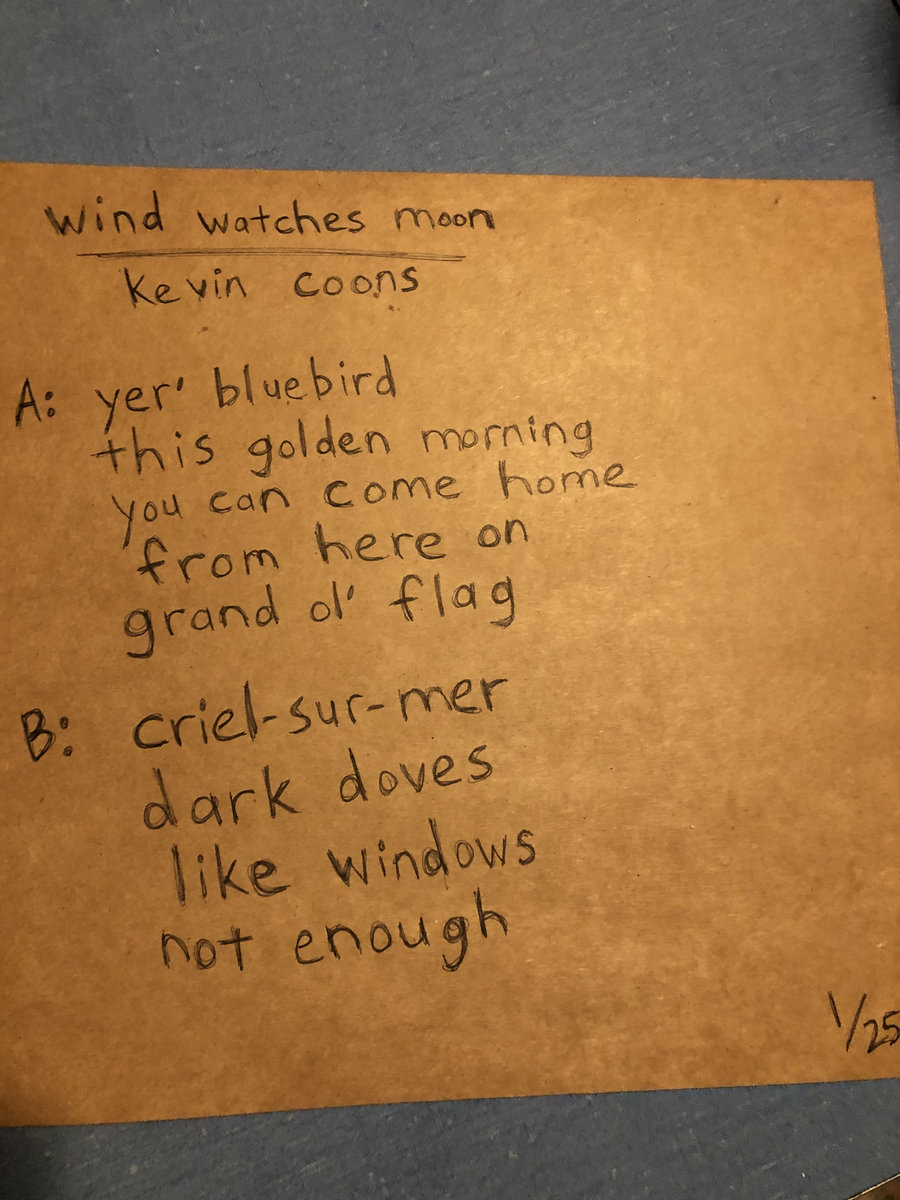 wind watches moon
Kevin Coons
A: yer' bluebird
this golden morning
you can come home
from here on
grand ol' flag
B: criel-sur-mer
dark doves
like windows
not enough
1/25